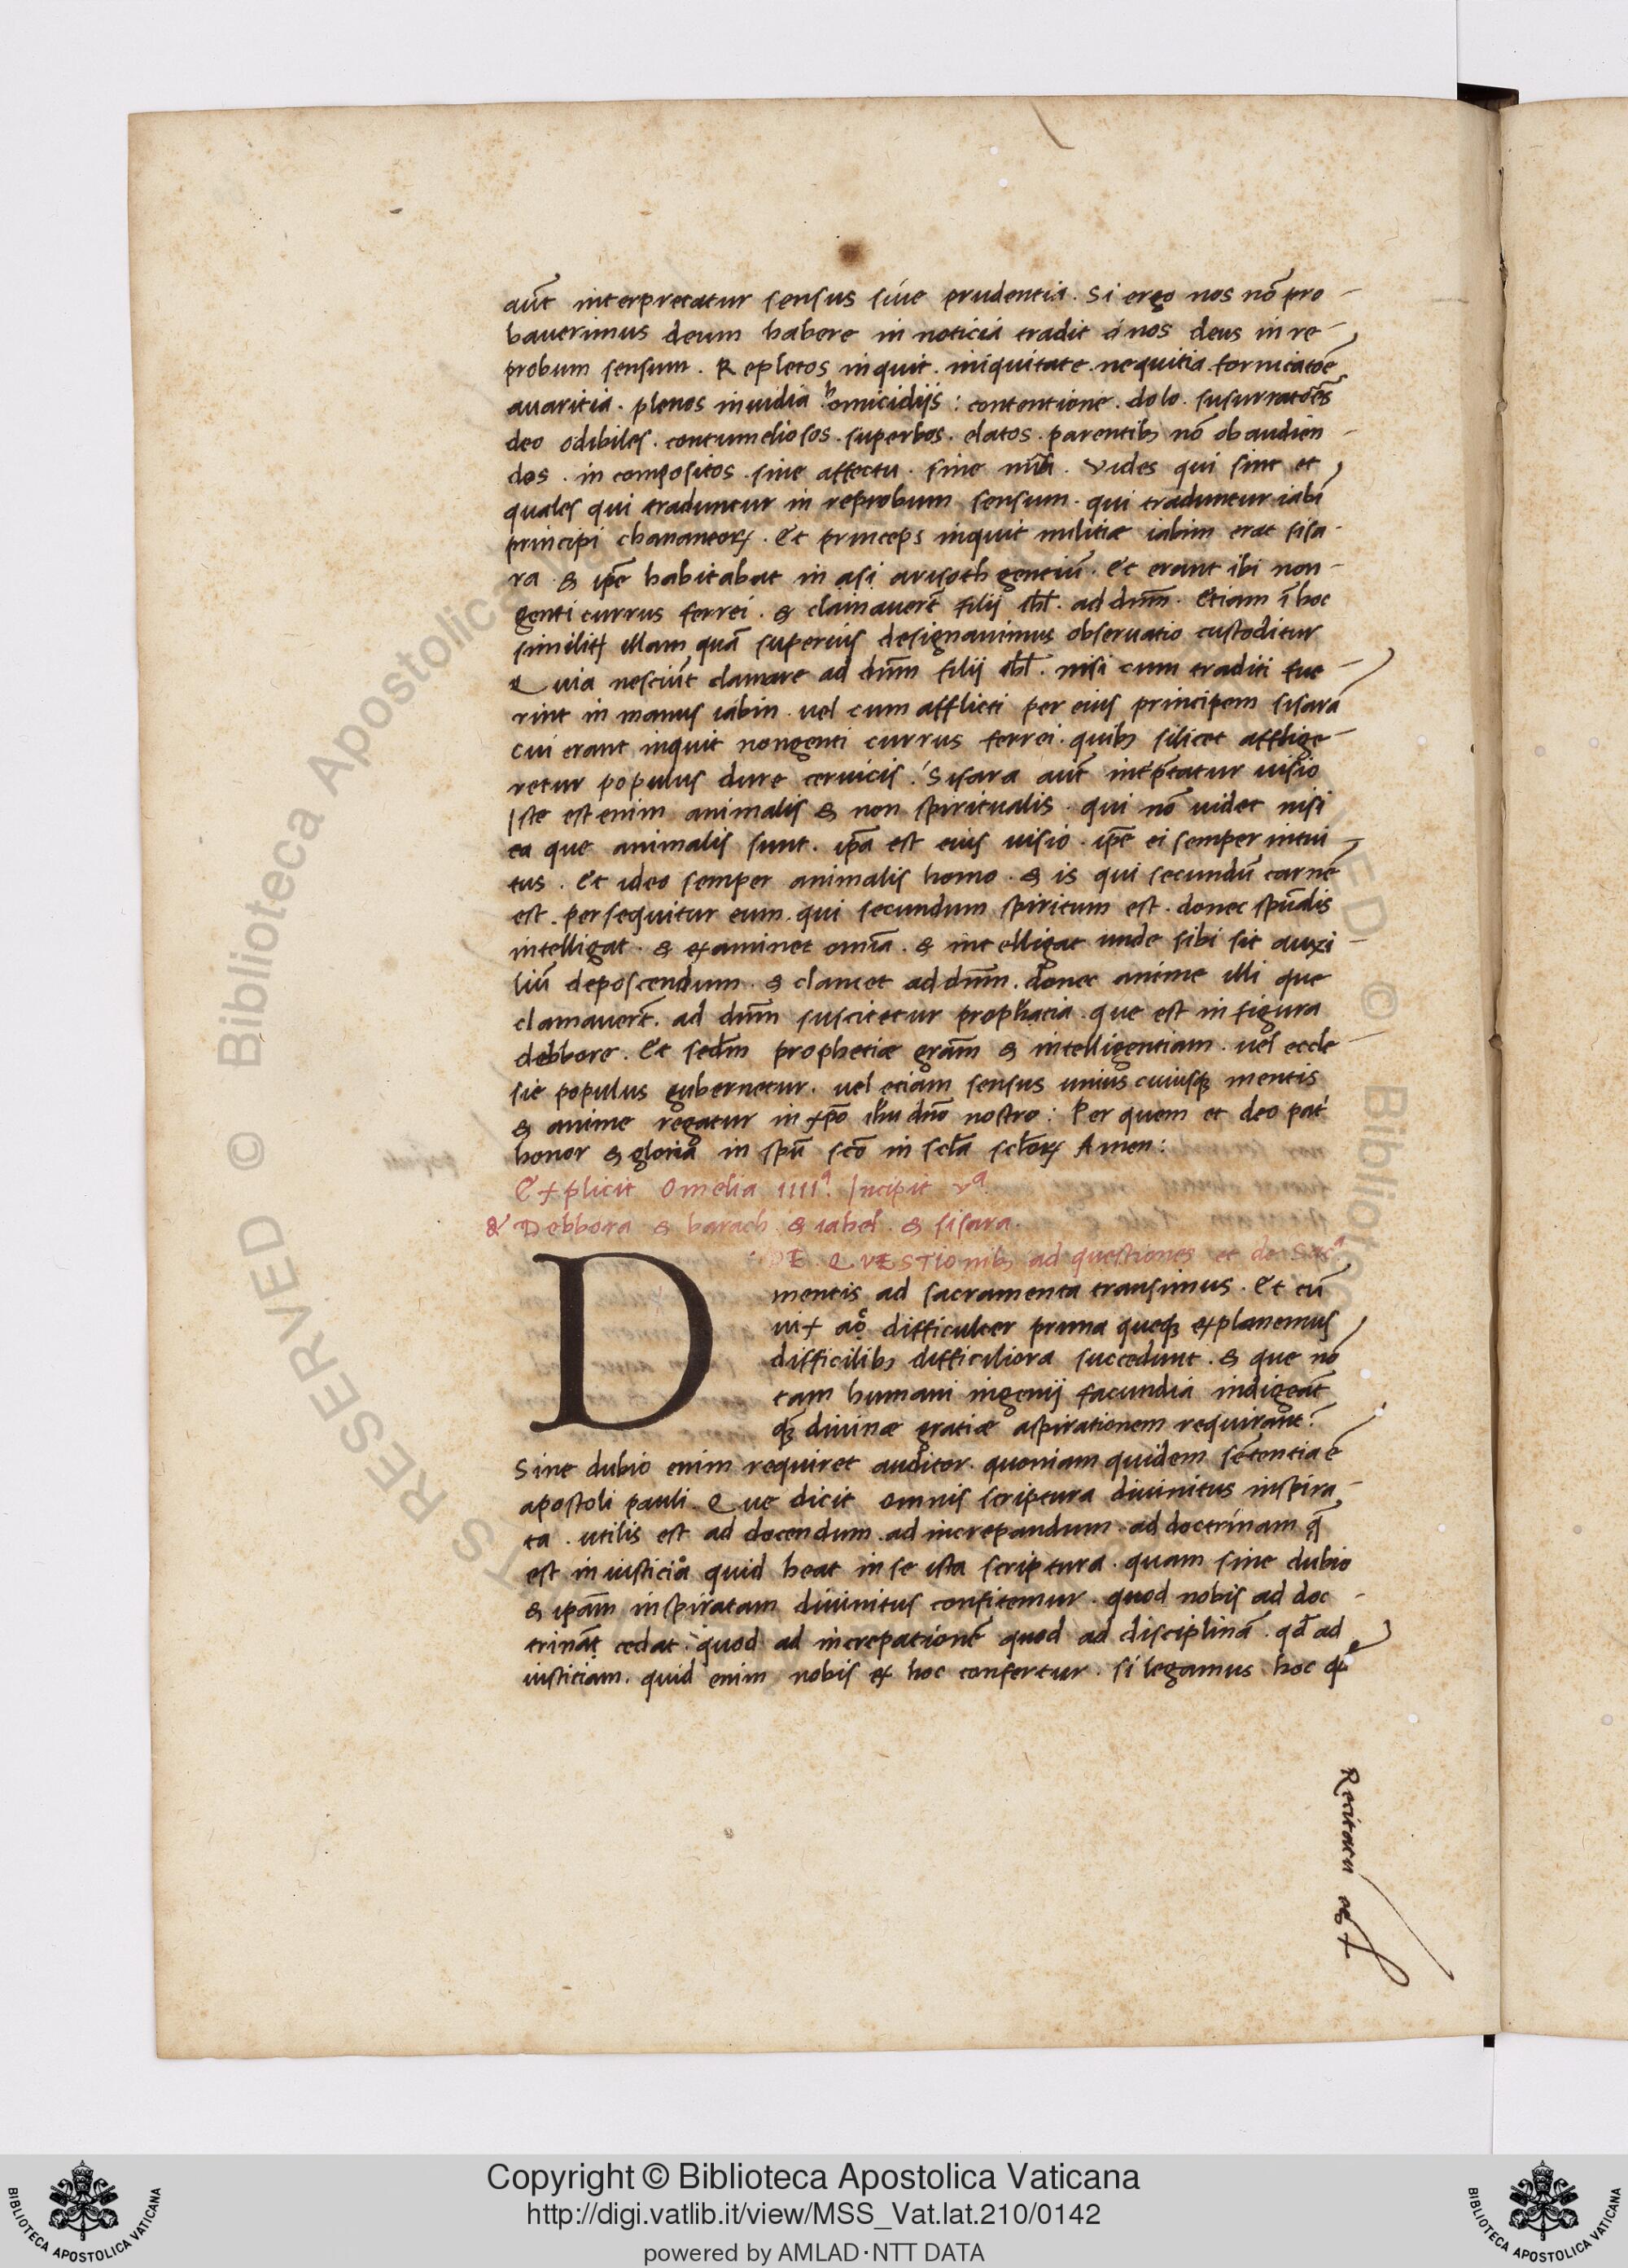 aut̄ interpretatur sensus siue prudentia. Si ergo nos nō pro-
bauerimus deum habere in noticia tradit & nos deus in re-
probum sensum. Repletos inquit. iniquitate. nequitia. fornicatōe
auaritia. plenos inuidia homicidijs: contentione. dolo. susurratōes
deo odibiles. contumeliosos. superbos. elatos. parentib; nō obaudien-
dos. in compositos. sine affectu. sine mīa. Vides qui sint et
quales qui traduntur in reprobum sensum. qui traduntur iabī
principi chananeoꝝ. Et princeps inquit militiæ iabim erat sisa-
ra & ip̄e habitabat in asi arisoth gentiū. Et erant ibi non-
genti currus ferrei. & clamauerūt filij isr̄l. ad dn̄m. Etiam ī hoc
similit̄ illam quā superius designauimus obseruatio custoditur
Quia nesciūt clamare ad dn̄m filij isr̄l. nisi cum traditi fue-
rint in manus iabin. uel cum afflicti per eius principem sisarā
cui erant inquit nongenti currus ferrei. quib; silicet afflige-
retur populus dure ceruicis. Sisara aut̄ int̄p̄tatur uisio
Iste est enim animalis & non spiritualis. qui nō uidet nisi
ea que animalis sunt. ip̄a est eius uisio. ip̄e ei semper intui
tus. Et ideo semper animalis homo. & is qui secundū carnē
est. persequitur eum. qui secundum spiritum est. donec spūalis
intelligat. & examinet omīa. & intelligat unde sibi sit auxi-
liū deposcendum. & clamet ad dn̄m. donec anime illi que
clamauerūt. ad dn̄m suscitetur prophatia. que est in figura
debbore. Et secdm̄ prophetiæ grām & intelligentiam. uel eccle-
sie populus gubernetur. uel etiam sensus unius cuiusq; mentis
& anime regatur in xp̄o ih̄u dn̄o nostro: Per quem et deo pat̄
honor & gloria in spū scō in scl̄a scl̄oꝝ Amen:
Explicit Omelia IIIIᵃ. Incipit vᵃ.
& Debbora & barach & iahel. & sisara.
DE QVESTIOnib; ad questiones et de Sacᵃ
D mentis ad sacramenta transimus. Et cū
uix difficulter prima queq; explanemus
difficilib; difficiliora succedunt. & que nō
tam humani ingenij facundia indigeāt
q̄; diuinæ gratiæ aspirationem requirant?
Sine dubio enim requiret auditor. quoniam quidem sētentia ē
apostoli pauli. Que dicit omnis scriptura diuinitus inspira-
ta. utilis est ad docendum. ad increpandum. ad doctrinam q̄
est in iusticia quid heat in se ista scriptura. quam sine dubio
& ip̄am inspiratam diuinitus confitemur. quod nobis ad doc-
trinā cedat. quod ad increpationē quod ad disciplinā. qd̄ ad
iusticiam. quid enim nobis ex hoc confertur. si legamus hoc q̄
Copyright © Biblioteca Apostolica Vaticana
http://digi.vatlib.it/view/MSS_Vat.lat.210/0142
powered by AMLAD·NTT DATA
BIBLIOTECA APOSTOLICA VATICANA
BIBLIOTECA APOSTOLICA VATICANA